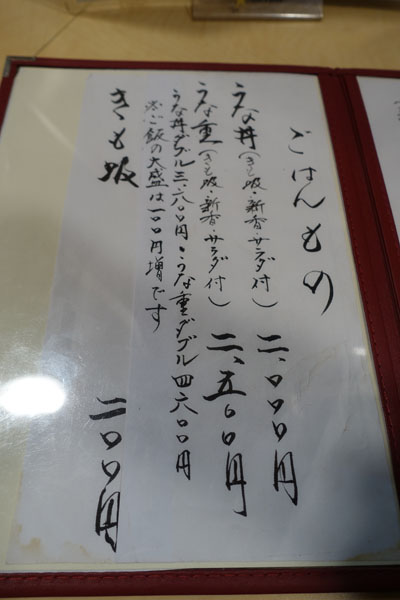 ごはんもの
うな丼(きも吸・新香・サラダ付) 二、〇〇〇円
うな重(きも吸・新香・サラダ付) 二、五〇〇円
うな丼ダブル三、八〇〇円・うな重ダブル四六〇〇円
ご飯の大盛は一〇〇円増です
きも吸 二〇〇円